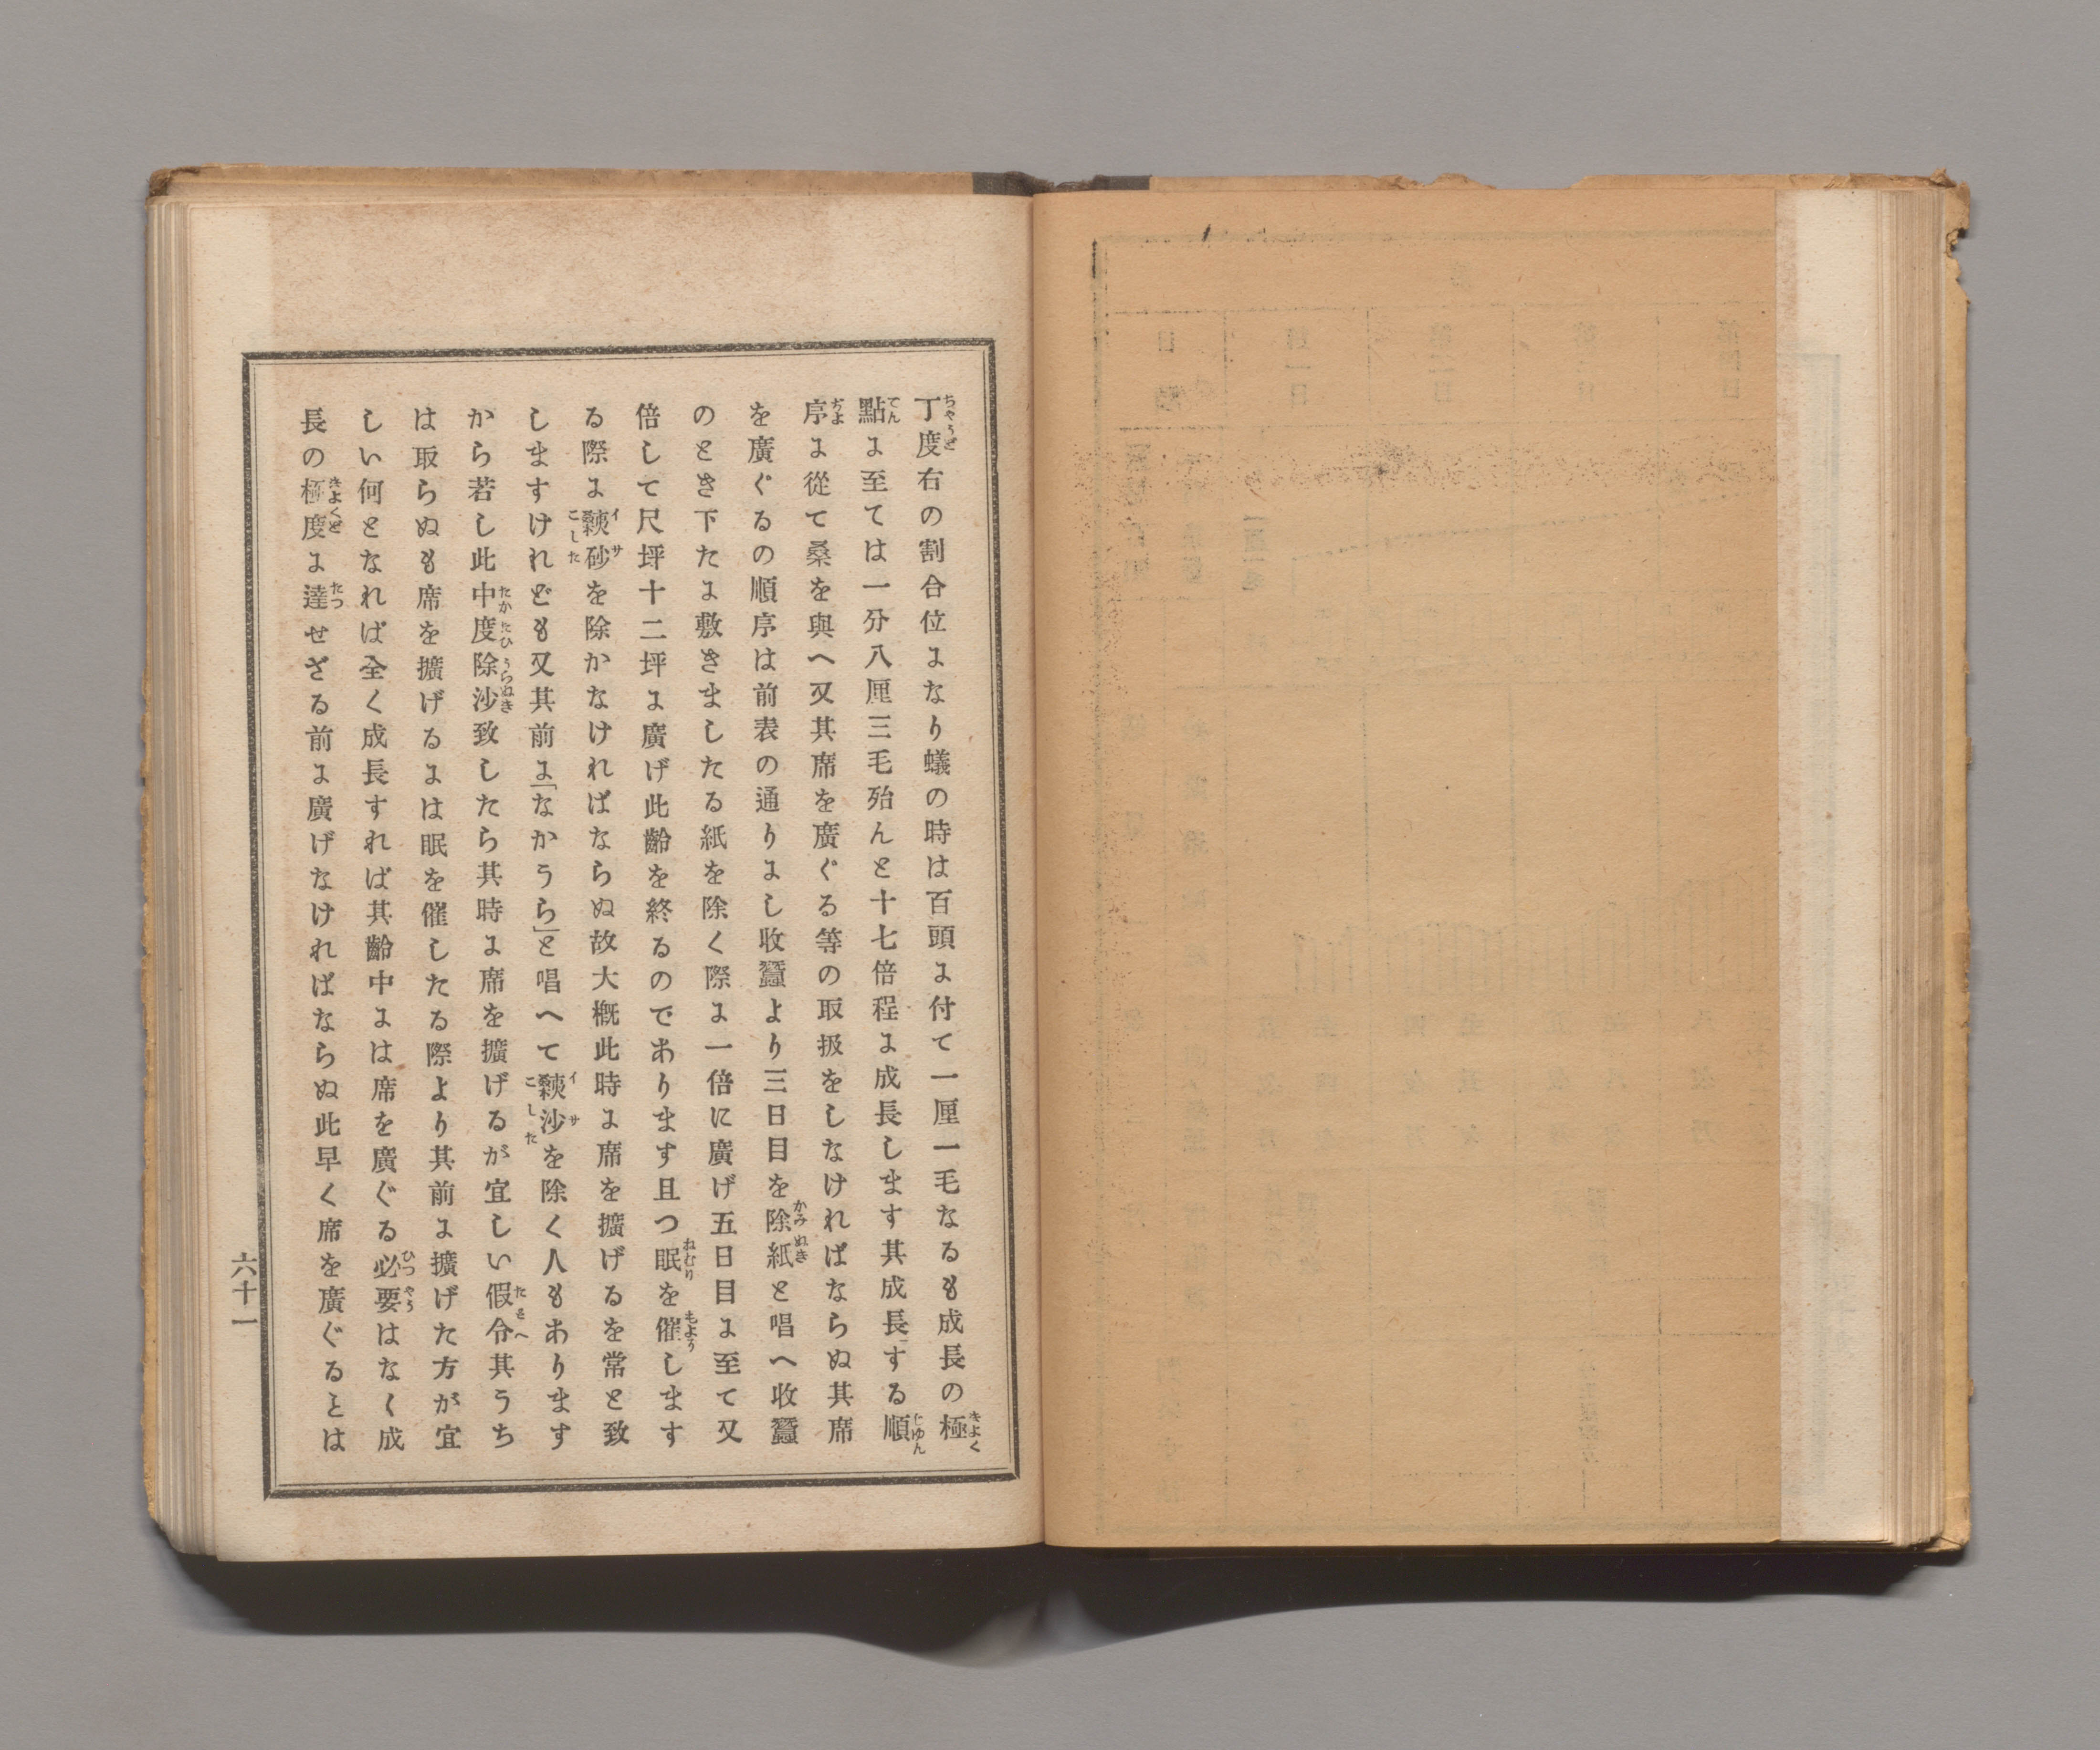 丁度右の割合位になり蟻の時は百頭に付て一厘一毛なるも成長の極
點に至ては一分八厘三毛殆んと十七倍程に成長します其成長する順
序に從て桑を與へ又其席を廣ぐる等の取扱をしなければならぬ其席
を廣ぐるの順序は前表の通りにし收蠶より三日目を除紙と唱へ收蠶
のとき下たに敷きましたる紙を除く際に一倍に廣げ五日目に至て又
倍して尺坪十二坪に廣げ此齡を終るのであります且つ眠を催します
る際に砂を除かなければならぬ故大概此時に席を擴げるを常と致
しますけれども又其前に「なかうら」と唱へて沙を除く人もあります
から若し此中度除沙致したら其時に席を擴げるが宜しい假令其うち
は取らぬも席を擴げるには眠を催したる際より其前に擴げた方が宜
しい何となれば全く成長すれば其齡中には席を廣ぐる必要はなく成
長の極度に達せざる前に廣げなければならぬ此早く席を廣ぐるとは
六十一